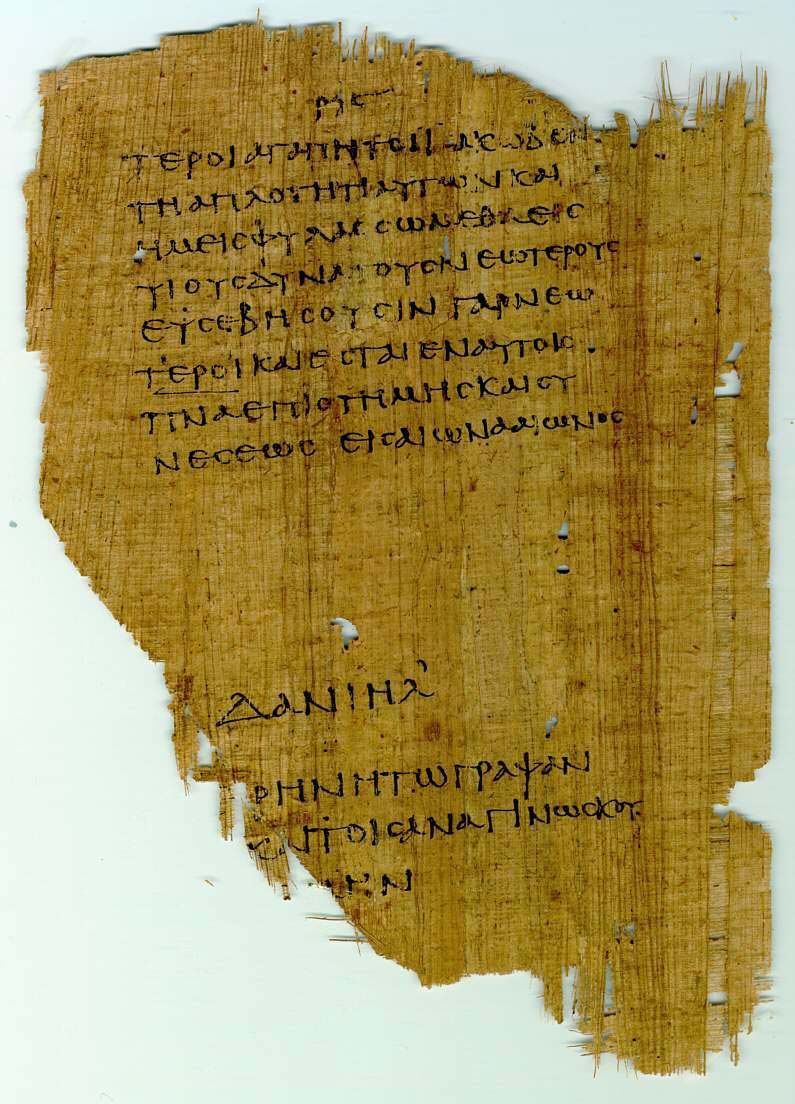 ρϟϛ
ΤΕΡΟΙΑΓΑΠΗΤΟΙΙΑΚΩΒΕΝ
ΤΗΑΠΛΟΤΗΤΙΑΥΤΩΝΚΑΙ
ΗΜΕΙϹΦΥΛΑϹϹΩΜΕΘΑΕΙϹ
ΥΙΟΥϹΔΥΝΑΤΟΥϹΝΕΩΤΕΡΟΥϹ
ΕΥϹΕΒΗϹΟΥϹΙΝ ΓΑΡΝΕΩ
ΤΕΡΟΙΚΑΙΕϹΤΑΙΕΝΑΥΤΟΙϹ
ΠΝΑΕΠΙϹΤΗΜΗϹΚΑΙϹΥ
ΝΕϹΕΩϹ ΕΙϹΑΙΩΝΑΑΙΩΝΟϹ
ΔΑΝΙΗΛ
ΡΗΝΗΤΩΓΡΑΨΑΝ
ΑΙΤΟΙϹΑΝΑΓΙΝΩϹΚΟΥ
ΜΗΝ